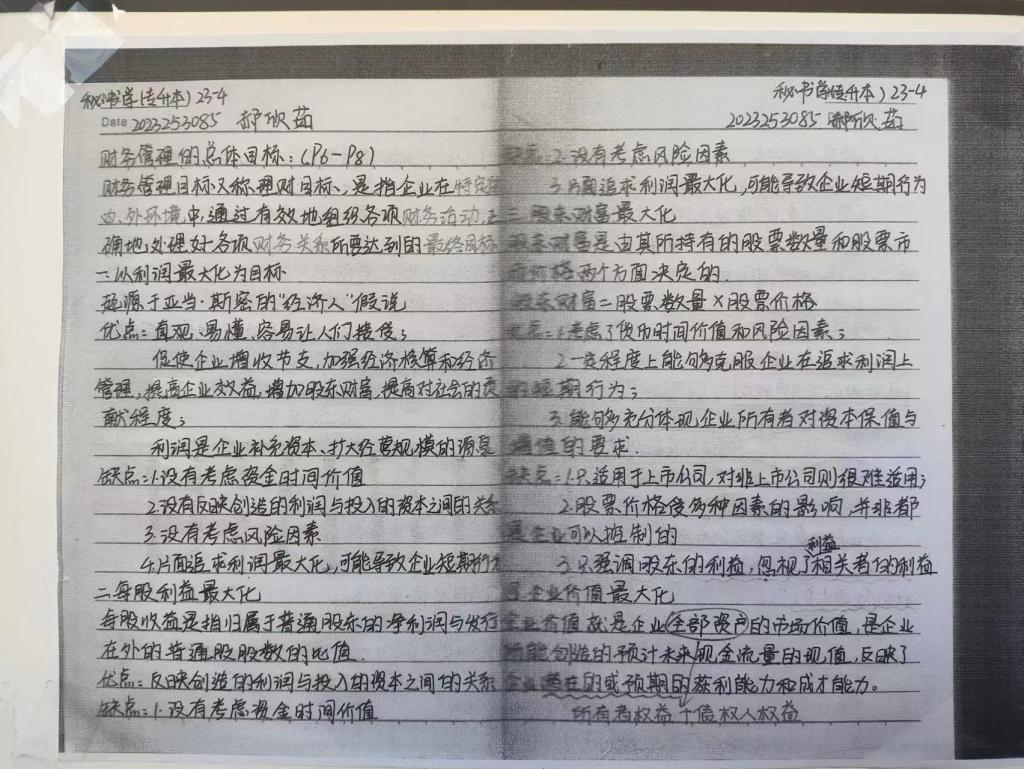 秘书学(专升本) 23-4
Date 2023253085 郝欣茹
财务管理的总体目标:(P6-P8)
财务管理目标又称理财目标,是指企业在特定的
内、外环境中,通过有效地组织各项财务活动,正
确地处理好各项财务关系所要达到的最终目标
一.以利润最大化为目标
起源于亚当·斯密的“经济人”假说
优点:直观、易懂、容易让人们接受;
促使企业增收节支,加强经济核算和经济
管理,提高企业效益,增加股东财富,提高对社会的贡
献程度;
利润是企业补充资本、扩大经营规模的源泉
缺点:1.没有考虑资金时间价值
2.没有反映创造的利润与投入的资本之间的关系
3.没有考虑风险因素
4.片面追求利润最大化,可能导致企业短期行为
二.每股利益最大化
每股收益是指归属于普通股东的净利润与发行
在外的普通股股数的比值.
优点:反映创造的利润与投入的资本之间的关系
缺点:1.没有考虑资金时间价值
秘书学(专升本) 23-4
2023253085 郝欣茹
2.没有考虑风险因素
3.片面追求利润最大化,可能导致企业短期行为
三.股东财富最大化
股东财富是由其所持有的股票数量和股票市
场价格两个方面决定的.
股东财富=股票数量×股票价格
优点:1.考虑了货币时间价值和风险因素;
2.一定程度上能够克服企业在追求利润上
的短期行为;
3.能够充分体现企业所有者对资本保值与
增值的要求.
缺点:1.只适用于上市公司,对非上市公司则很难适用;
2.股票价格受多种因素的影响,并非都
是企业可以控制的
3.只强调股东的利益,忽视了利益相关者的利益
企业价值最大化
企业价值就是企业全部资产的市场价值,是企业
所能创造的预计未来现金流量的现值,反映了
企业潜在的或预期的获利能力和成才能力。
所有者权益+债权人权益